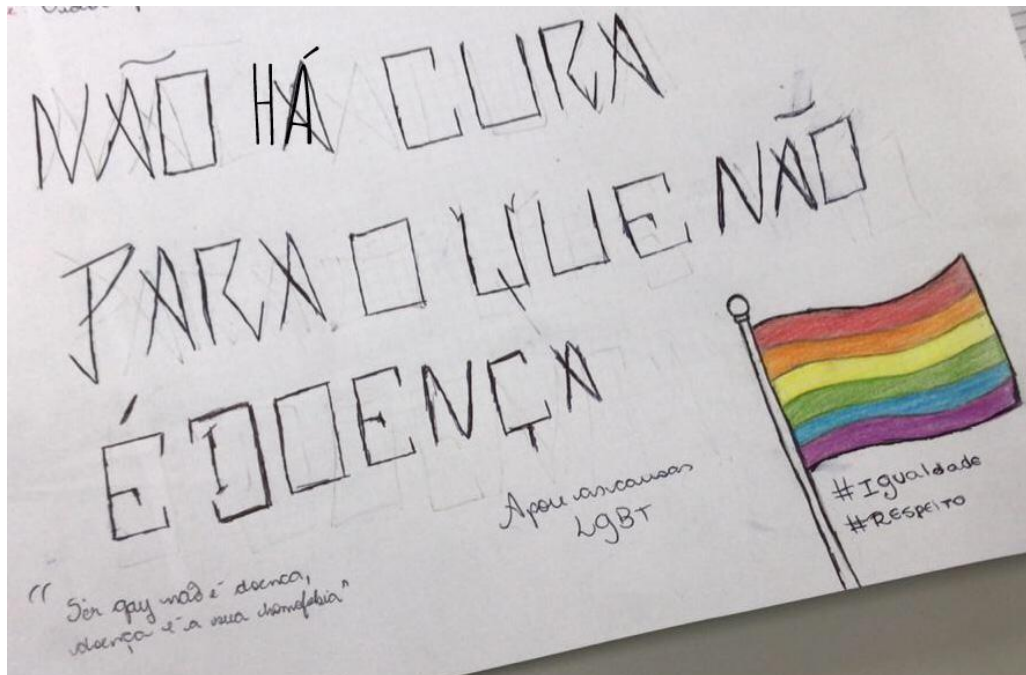 NÃO HÁ CURA
PARA O QUE NÃO
É DOENÇA
Apoie as causas
LGBT
#Igualdade
#RESPEITO
"Ser gay não é doença,
doença é a sua homofobia"